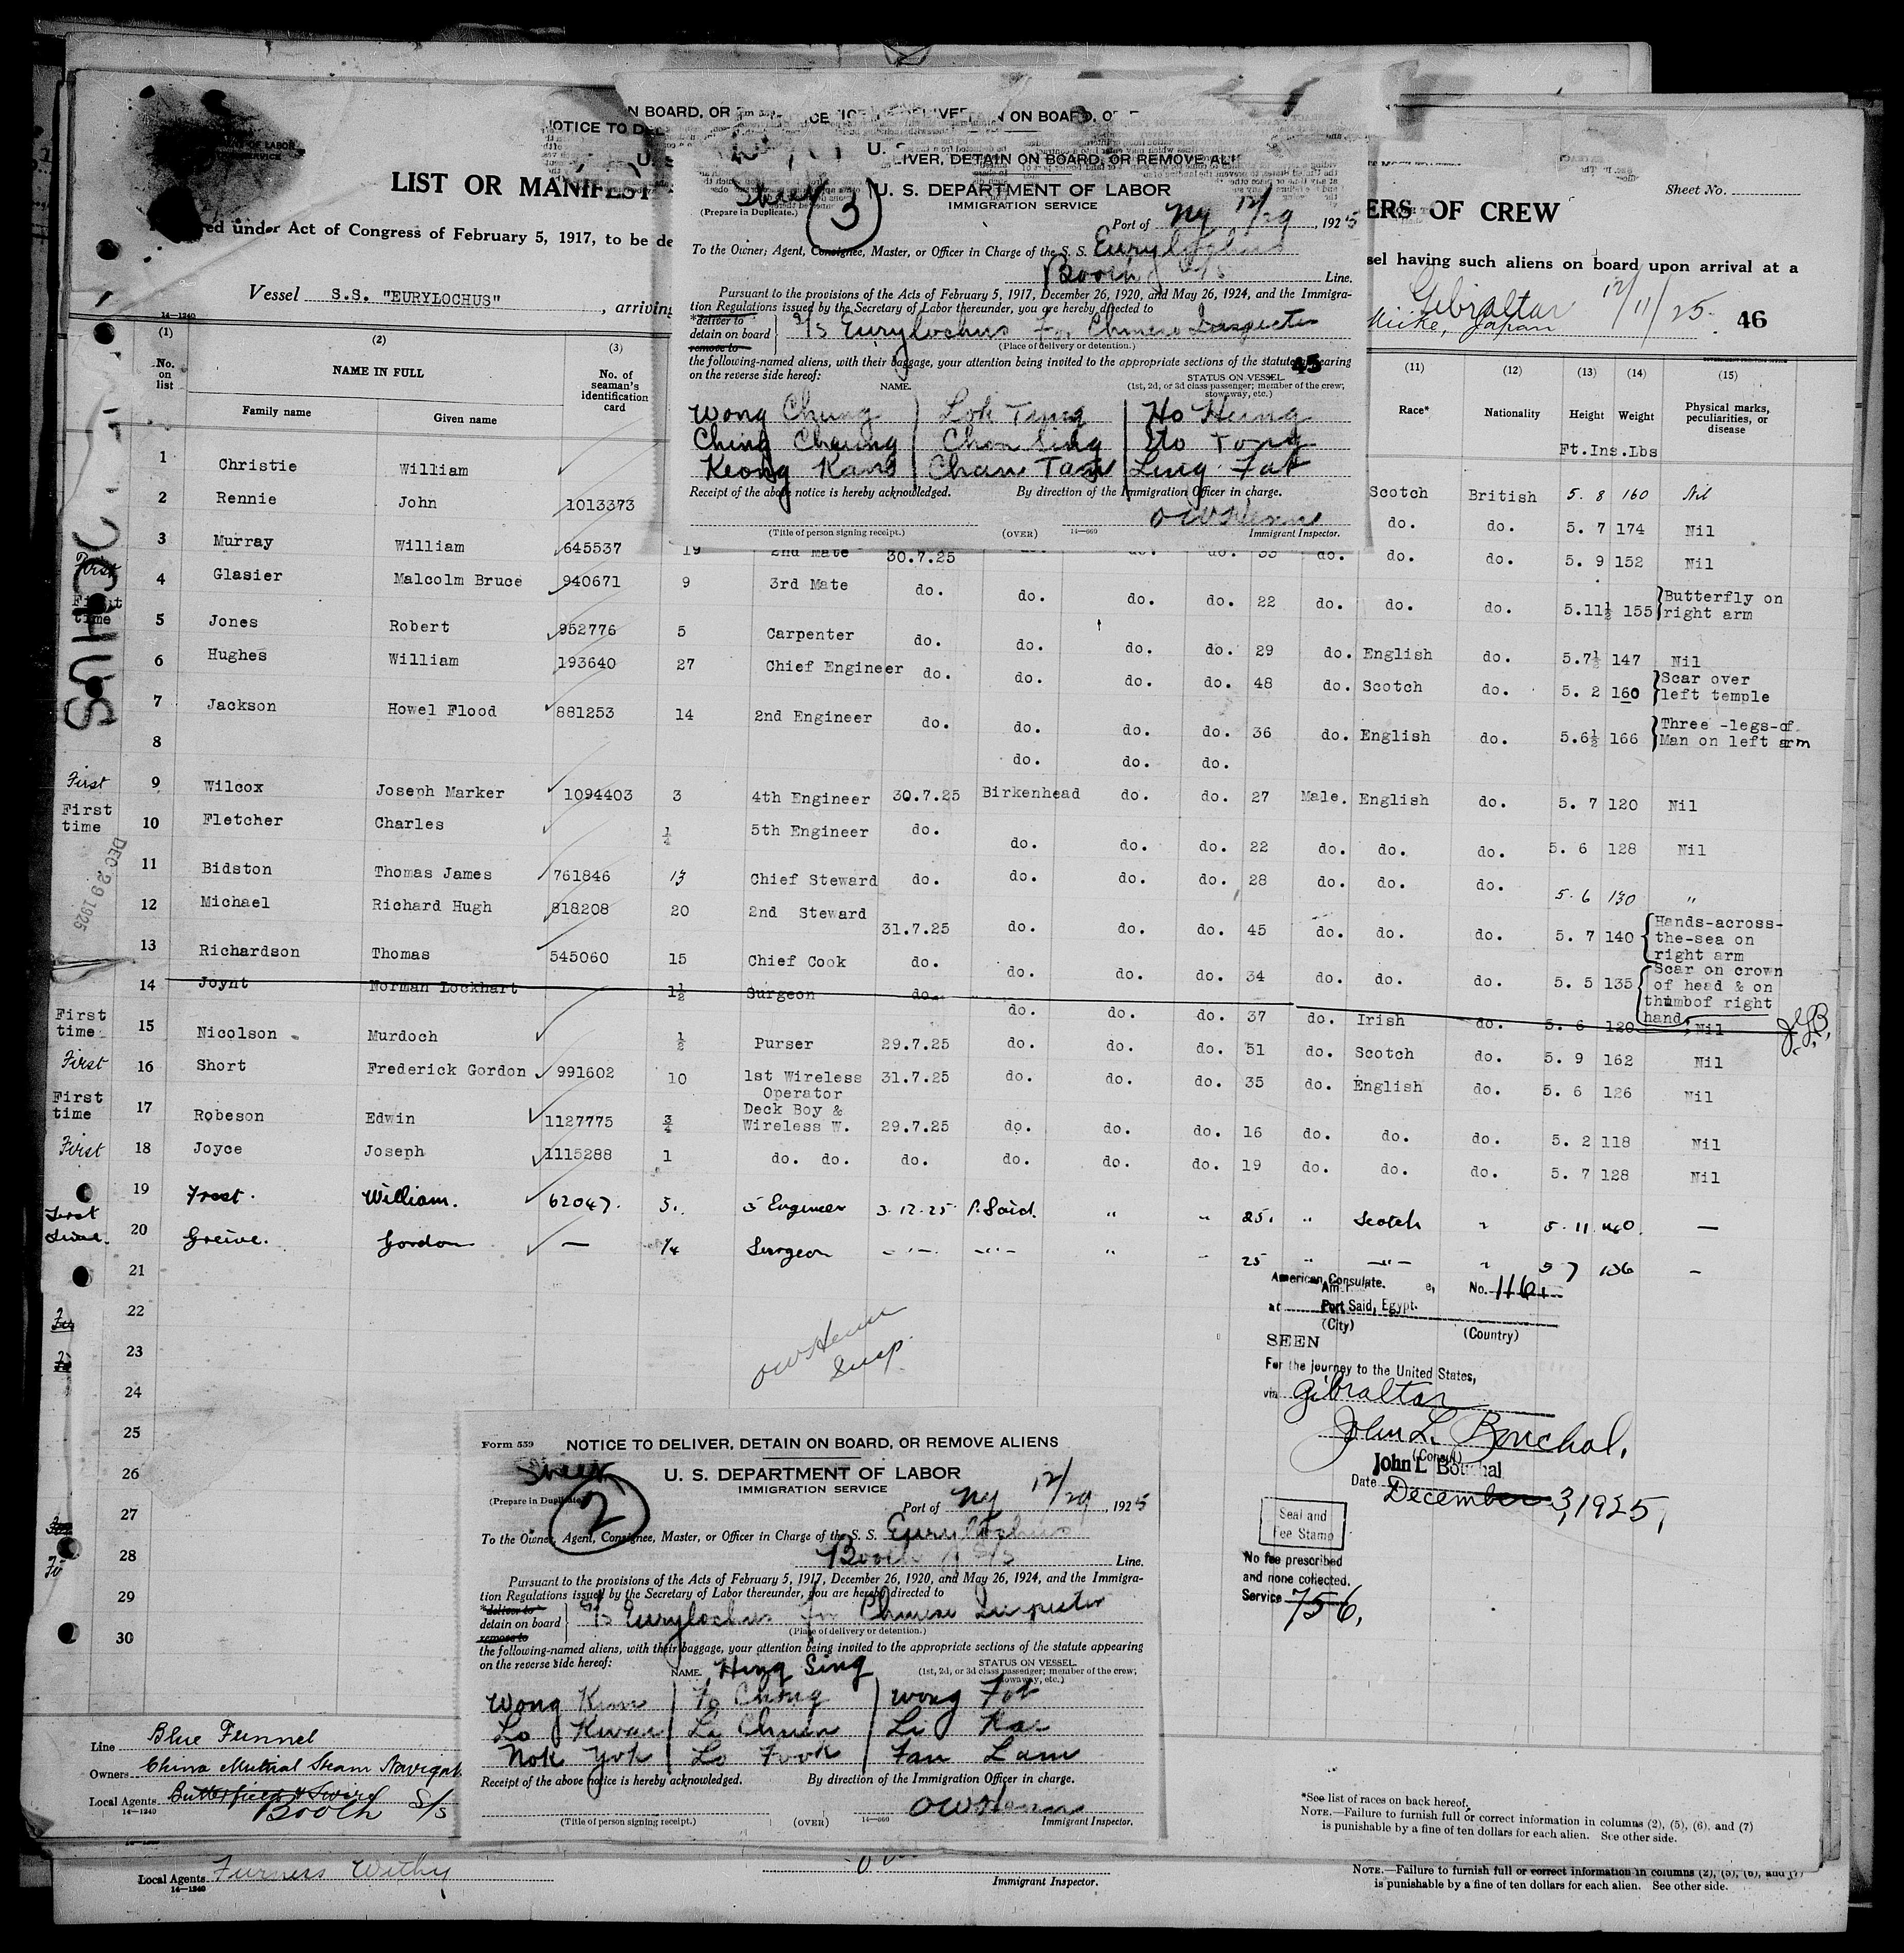 LIST OR MANIFEST
ERS OF CREW
Sheet No.
ed under Act of Congress of February 5, 1917, to be de
sel having such aliens on board upon arrival at a
Vessel S.S. "EURYLOCHUS" , arriving
Gibraltar 12/11/25.
Miike, Japan
46
14—1240
N BOARD, OR
NOTICE TO DE
N ON BOARD, O
LIVER, DETAIN ON BOARD, OR REMOVE ALI
Sheet 3
U. S. DEPARTMENT OF LABOR
IMMIGRATION SERVICE
(Prepare in Duplicate.)
Port of NY 12/29, 1925
To the Owner, Agent, Consignee, Master, or Officer in Charge of the S. S. Eurylochus
Booth S/S Line.
Pursuant to the provisions of the Acts of February 5, 1917, December 26, 1920, and May 26, 1924, and the Immigra-
tion Regulations issued by the Secretary of Labor thereunder, you are hereby directed to
*deliver to
detain on board
remove to
S/S Eurylochus for Chinese Inspector
(Place of delivery or detention.)
the following-named aliens, with their baggage, your attention being invited to the appropriate sections of the statute appearing
45
on the reverse side hereof:
NAME.
STATUS ON VESSEL
(1st, 2d, or 3d class passenger; member of the crew;
stowaway, etc.)
Wong Chung Lok Tung Ho Heung
Ching Cheung Chon Sing Ho Tong
Keong Kam Chan Tam Ling Fat
Receipt of the above notice is hereby acknowledged. By direction of the Immigration Officer in charge.
(Title of person signing receipt.) (OVER) 14—669 Immigrant Inspector.
(1) (2) (3) (11) (12) (13) (14) (15)
No. on list
NAME IN FULL
Family name Given name
No. of seaman's identification card
Race* Nationality Height Weight Physical marks, peculiarities, or disease
Ft.Ins.Lbs
1 Christie William Scotch British 5. 8 160 Nil
2 Rennie John 1013373 do. do. 5. 7 174 Nil
3 Murray William 645537 19 2nd Mate 30.7.25 do. do. do. 33 do. do. do. 5. 9 152 Nil
First
4 Glasier Malcolm Bruce 940671 9 3rd Mate do. do. do. do. 22 do. do. do. 5.11½ 155 Butterfly on right arm
First time
5 Jones Robert 952776 5 Carpenter do. do. do. do. 29 do. English do. 5.7½ 147 Nil
6 Hughes William 193640 27 Chief Engineer do. do. do. do. 48 do. Scotch do. 5. 2 160 Scar over left temple
7 Jackson Howel Flood 881253 14 2nd Engineer do. do. do. do. 36 do. English do. 5.6½ 166 Three -legs-of Man on left arm
8 do. do. do.
First 9 Wilcox Joseph Marker 1094403 3 4th Engineer 30.7.25 Birkenhead do. do. 27 Male. English do. 5. 7 120 Nil
First time 10 Fletcher Charles ¼ 5th Engineer do. do. do. do. 22 do. do. do. 5. 6 128 Nil
11 Bidston Thomas James 761846 13 Chief Steward do. do. do. do. 28 do. do. do. 5. 6 130 "
12 Michael Richard Hugh 818208 20 2nd Steward 31.7.25 do. do. do. 45 do. do. do. 5. 7 140 Hands-across-the-sea on right arm
13 Richardson Thomas 545060 15 Chief Cook do. do. do. do. 34 do. do. do. 5. 5 135 Scar on crown of head & on thumbof right hand
14 Joynt Norman Lockhart 1½ Surgeon do. do. do. do. 37 do. Irish do. 5. 6 120 Nil
First time 15 Nicolson Murdoch ½ Purser 29.7.25 do. do. do. 51 do. Scotch do. 5. 9 162 Nil
First 16 Short Frederick Gordon 991602 10 1st Wireless Operator 31.7.25 do. do. do. 35 do. English do. 5. 6 126 Nil
First time 17 Robeson Edwin 1127775 ¾ Deck Boy & Wireless W. 29.7.25 do. do. do. 16 do. do. do. 5. 2 118 Nil
First 18 Joyce Joseph 1115288 1 do. do. do. do. do. do. 19 do. do. do. 5. 7 128 Nil
19 Frost. William. 62047. 5. 5 Engineer 3.12.25 P. Said. " " 25. " Scotch " 5. 11 140. —
First time. 20 Greive. Gordon — ¼ Surgeon —"— —"— " " 25 " —"— " 5 7 136 —
21
22
23
24
25
26
27
28
29
30
DEC 29 1925
OW Insp.
American Consulate. No. 1161
at Port Said, Egypt.
(City) (Country)
SEEN
For the journey to the United States,
via Gibraltar
John L. Bouchal.
(Consul)
John L Bouchal
Date December 3, 1925.
Seal and
Fee Stamp
No fee prescribed
and none collected.
Service 756.
Form 539 NOTICE TO DELIVER, DETAIN ON BOARD, OR REMOVE ALIENS
Sheet 2
U. S. DEPARTMENT OF LABOR
IMMIGRATION SERVICE
(Prepare in Duplicate.)
Port of NY 12/29, 1925
To the Owner, Agent, Consignee, Master, or Officer in Charge of the S. S. Eurylochus
Booth S/S Line.
Pursuant to the provisions of the Acts of February 5, 1917, December 26, 1920, and May 26, 1924, and the Immigra-
tion Regulations issued by the Secretary of Labor thereunder, you are hereby directed to
*deliver to
detain on board
remove to
S/S Eurylochus for Chinese Inspector
(Place of delivery or detention.)
the following-named aliens, with their baggage, your attention being invited to the appropriate sections of the statute appearing
on the reverse side hereof:
NAME. Hing Sing
STATUS ON VESSEL
(1st, 2d, or 3d class passenger; member of the crew;
stowaway, etc.)
Wong Kum Fo Chong Wong Fot
Lo Kwai Li Chuen Li Kai
Nok Yok Lo Fook Fan Lam
Receipt of the above notice is hereby acknowledged. By direction of the Immigration Officer in charge.
(Title of person signing receipt.) (OVER) 14—669 Immigrant Inspector.
Line Blue Funnel
Owners China Mutual Steam Navigat
Local Agents Butterfield & Swire
Booth S/S
14—1240
*See list of races on back hereof.
NOTE.—Failure to furnish full or correct information in columns (2), (5), (6), and (7)
is punishable by a fine of ten dollars for each alien. See other side.
Local Agents Furness Withy
14—1240
Immigrant Inspector.
NOTE.—Failure to furnish full or correct information in columns (2), (5), (6), and (7)
is punishable by a fine of ten dollars for each alien. See other side.